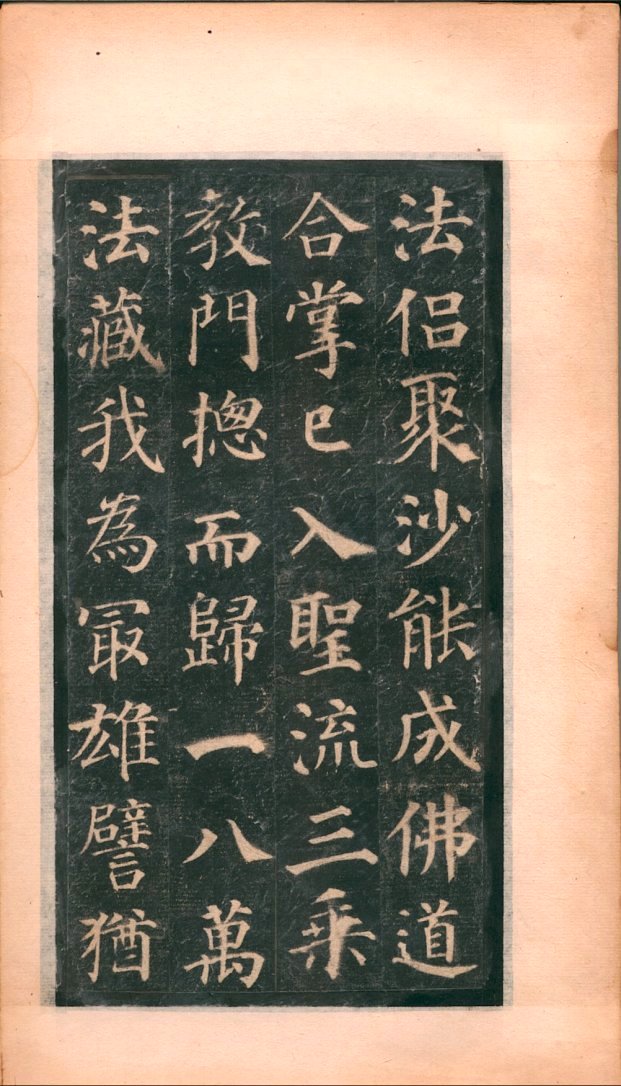 法侣聚沙能成佛道
合掌已入聖流三乗
教門揔而歸一八萬
法藏我為冣雄譬猶